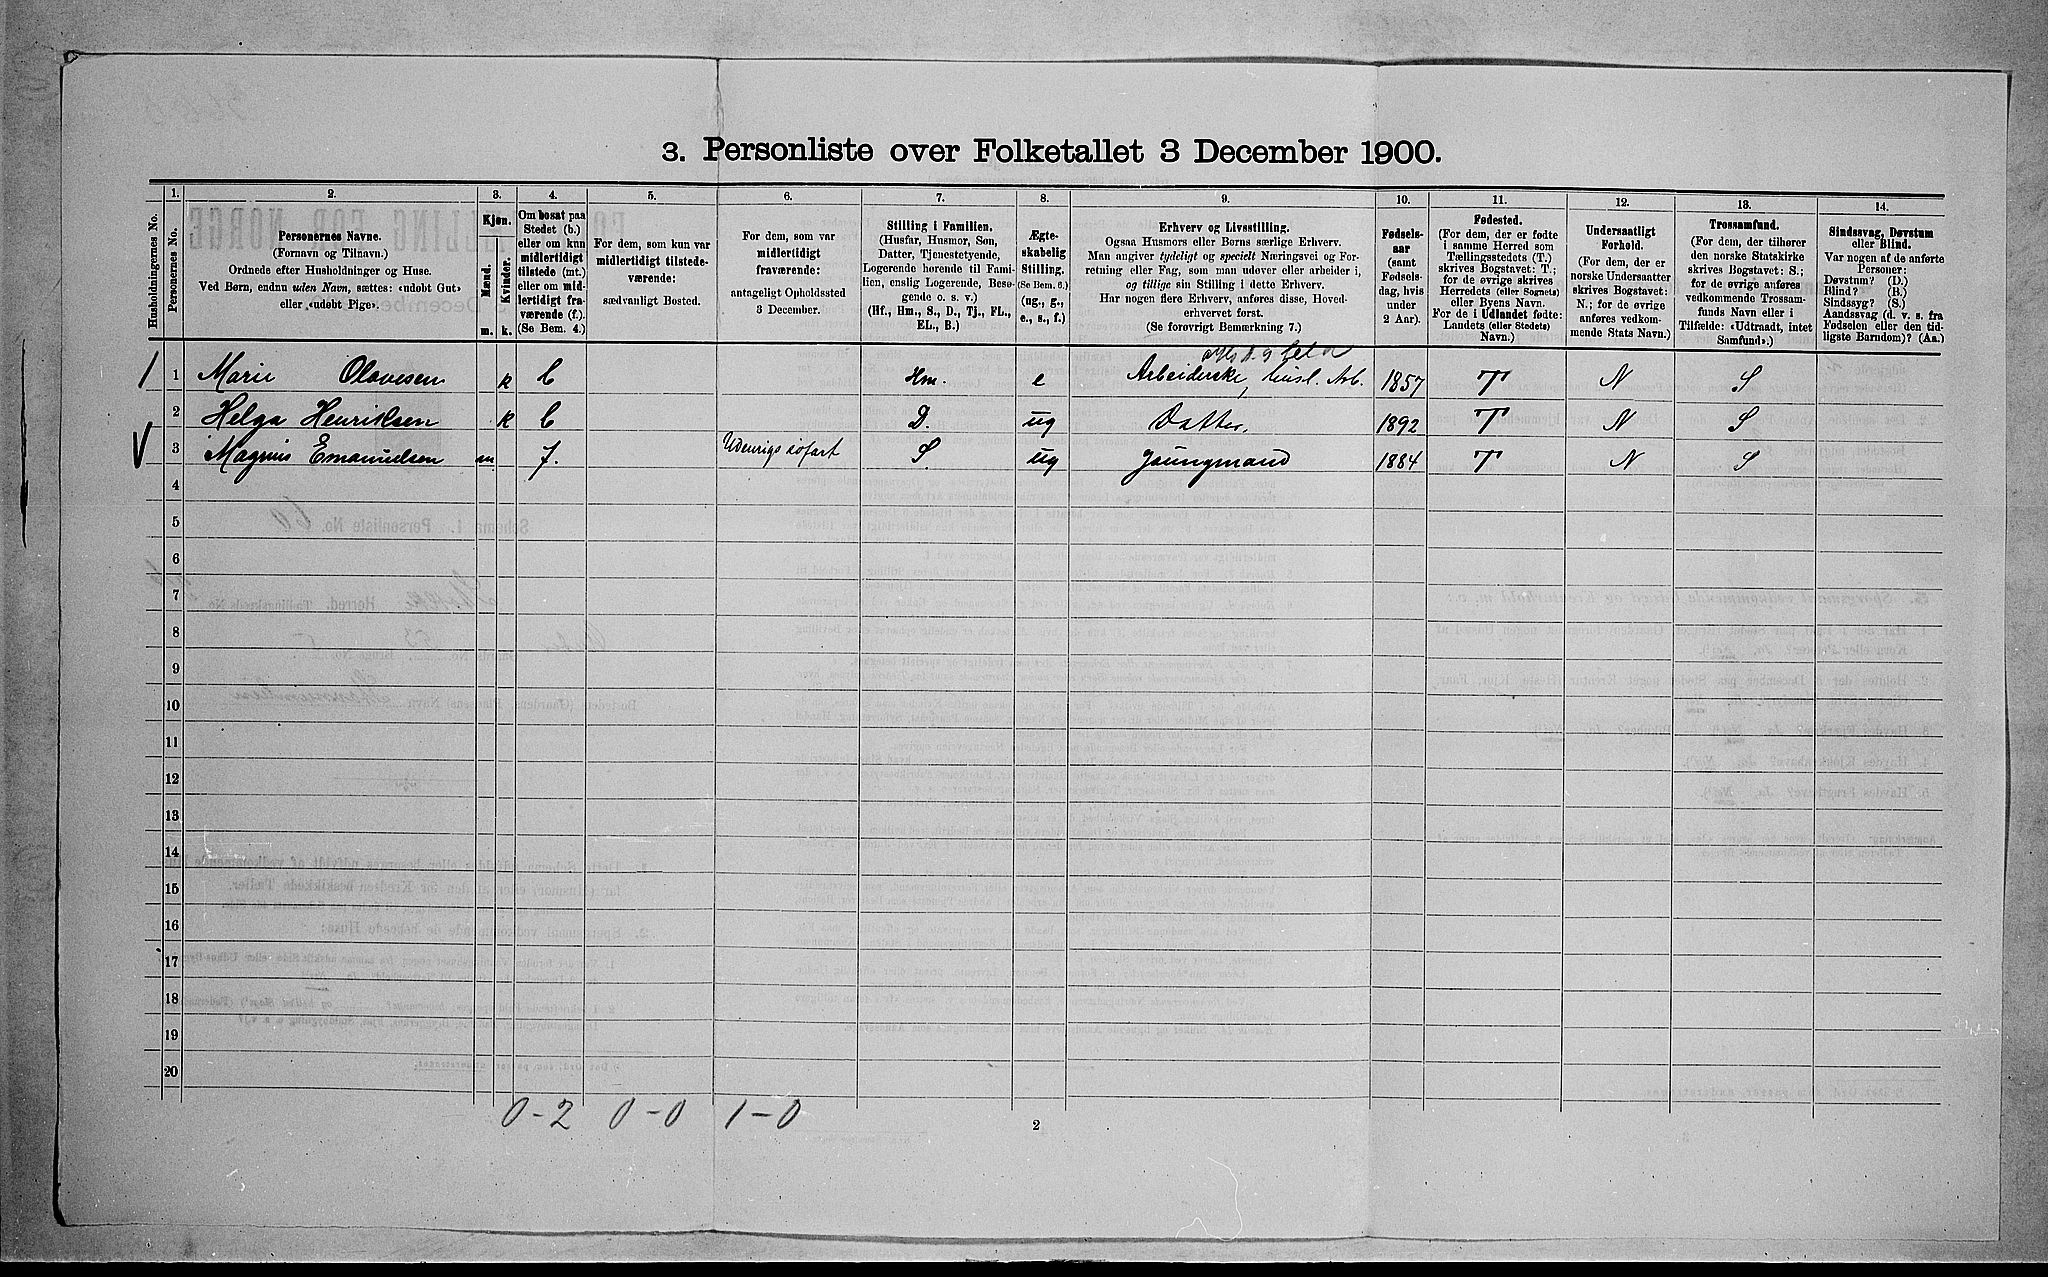 3. Personliste over Folketallet 3 December 1900.
1. 2. 3. 4. 5. 6. 7. 8. 9. 10. 11. 12. 13. 14.
Husholdningernes No.
Personernes No.
Personernes Navne.
(Fornavn og Tilnavn.)
Ordnede efter Husholdninger og Huse.
Ved Børn, endnu uden Navn, sættes: «udøbt Gut»
eller «udøbt Pige».
Kjøn.
Mænd.
Kvinder.
m. k.
Om bosat paa
Stedet (b.)
eller om kun
midlertidigt
tilstede (mt.)
eller om mid-
lertidigt fra-
værende (f.).
(Se Bem. 4.)
For dem, som kun var
midlertidigt tilstede-
værende:
sædvanligt Bosted.
For dem, som var
midlertidigt
fraværende:
antageligt Opholdssted
3 December.
Stilling i Familien.
(Husfar, Husmor, Søn,
Datter, Tjenestetyende,
Logerende hørende til Fami-
lien, enslig Logerende, Besø-
gende o. s. v.)
(Hf., Hm., S., D., Tj., FL.,
EL., B.)
Ægte-
skabelig
Stilling.
(Se Bem. 6.)
(ug., g.,
e., s., f.)
Erhverv og Livsstilling.
Ogsaa Husmors eller Børns særlige Erhverv.
Man angiver tydeligt og specielt Næringsvei og For-
retning eller Fag, som man udover eller arbeider i,
og tillige sin Stilling i dette Erhverv.
Har nogen flere Erhverv, anføres disse, Hoved-
erhvervet først.
(Se forøvrigt Bemærkning 7.)
Fødsels-
aar
(samt
Fødsels-
dag, hvis
under
2 Aar).
Fødested.
(For dem, der er fødte
i samme Herred som
Tællingsstedets (T.)
skrives Bogstavet: T.;
for de øvrige skrives
Herredets (eller Sognets)
eller Byens Navn.
For de i Udlandet fødte:
Landets (eller Stedets)
Navn.)
Undersaatligt
Forhold.
(For dem, der er
norske Undersaatter
skrives Bogstavet:
N.; for de øvrige
anføres vedkom-
mende Stats Navn.)
Trossamfund.
(For dem, der tilhører
den norske Statskirke
skrives Bogstavet: S.;
for de øvrige anføres
vedkommende Trossam-
funds Navn eller i
Tilfælde: «Udtraadt, intet
Samfund».)
Sindssvag, Døvstum
eller Blind.
Var nogen af de anførte
Personer:
Døvstum? (D.)
Blind? (B.)
Sindssyg? (S.)
Aandssvag (d. v. s. fra
Fødselen eller den tid-
ligste Barndom)? (Aa.)
1 1 Marie Olavesen k b Hm. e Arbeiderske, husl. Arb. 1857 T N S
2 Helga Henriksen k b D. ug Datter. 1892 T N S
3 Magnus Emanuelsen m f. Udenrigs søfart S ug Joungmand 1884 T N S
4
5
6
7
8
9
10
11
12
13
14
15
16
17
18
19
20
0-2 0-0 1-0
2